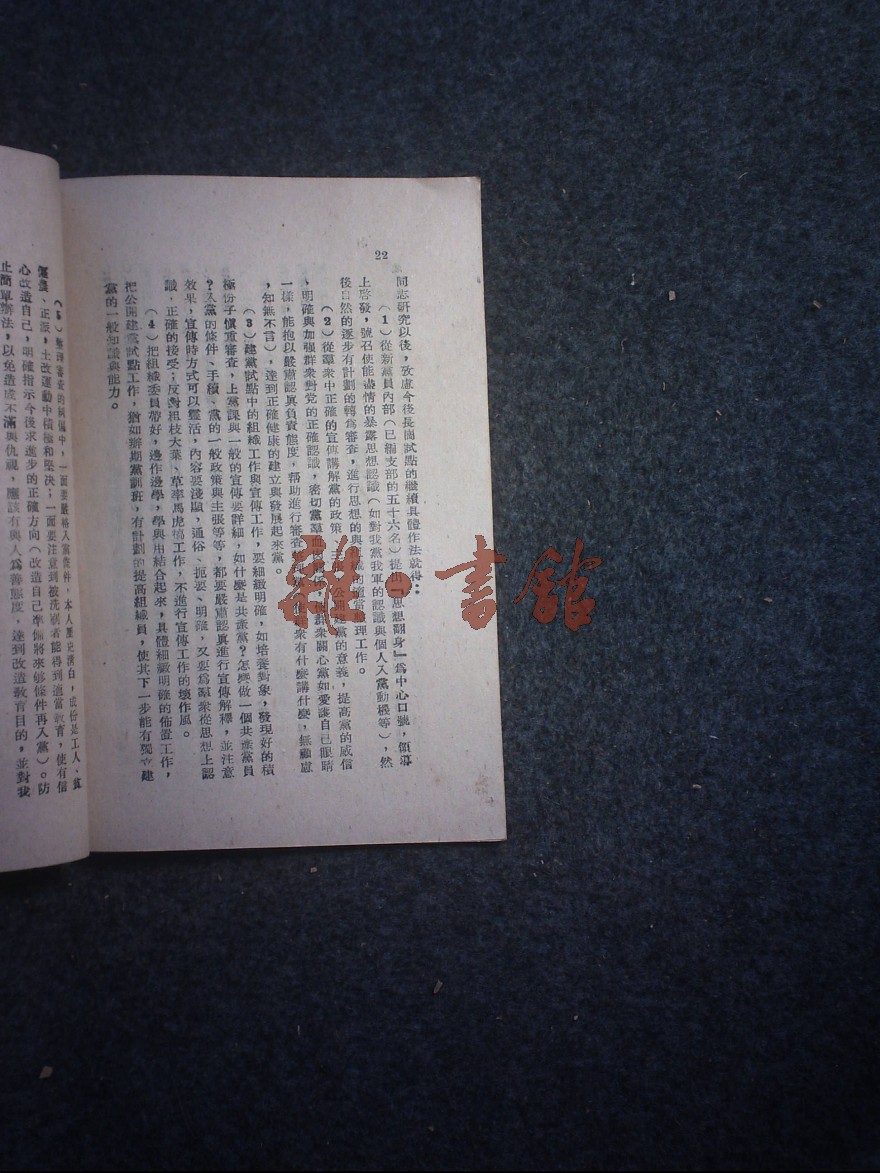 22
同志研究以後，攷慮今後長崗試點的繼續具體作法就得：
（1）從新黨員內部（已編支部的五十六名）提出『思想翻身』爲中心口號，領導
上啓發，號召使能盡情的暴露思想認識（如對我黨我軍的認識與個人入黨動機等），然
後自然的逐步有計劃的轉爲審查，進行思想的與組織的適當整理工作。
（2）從羣衆中正確的宣傳講解黨的政策、主張、公開建黨的意義，提高黨的威信
，明確與加强群衆對党的正確認識，密切黨羣血肉關係，使群衆關心黨如愛護自己眼睛
一樣，能抱以嚴肅認眞負責態度，帮助進行審查，衆有什麼講什麼，無顧慮
，知無不言），達到正確健康的建立與發展起來黨。
（3）建黨試點中的組織工作與宣傳工作，要細緻明確，如培養對象，發現好的積
極份子愼重審查，上黨課與一般的宣傳要詳細，如什麼是共產黨？怎麼做一個共產黨員
？入黨的條件、手續、黨的一般政策與主張等等，都要嚴肅認眞進行宣傳解釋，並注意
效果，宣傳時方式可以靈活，內容要淺顯，通俗、扼要、明確，又要爲羣衆從思想上認
識，正確的接受；反對粗枝大葉、草率馬虎搞工作，不進行宣傳工作的壞作風。
（4）把組織委員帶好，邊作邊學，學與用結合起來，具體細緻明確的佈置工作，
把公開建黨試點工作，猶如辦期黨訓班，有計劃的提高組織員，使其下一步能有獨立建
黨的一般知識與能力。
（5）整理審查的純備中，一面要嚴格入黨條件，本人歷史清白，成份是工人、貧
僱農、正派，土改運動中積極和堅决；一面要注意到被洗刷者能得到適當教育，使有信
心改造自己，明確指示今後求進步的正確方向（改造自己準備將來够條件再入黨）。防
止簡單辦法，以免造成不滿與仇視，應該有與人爲善態度，達到改造敎育目的，並對我
雜·書館